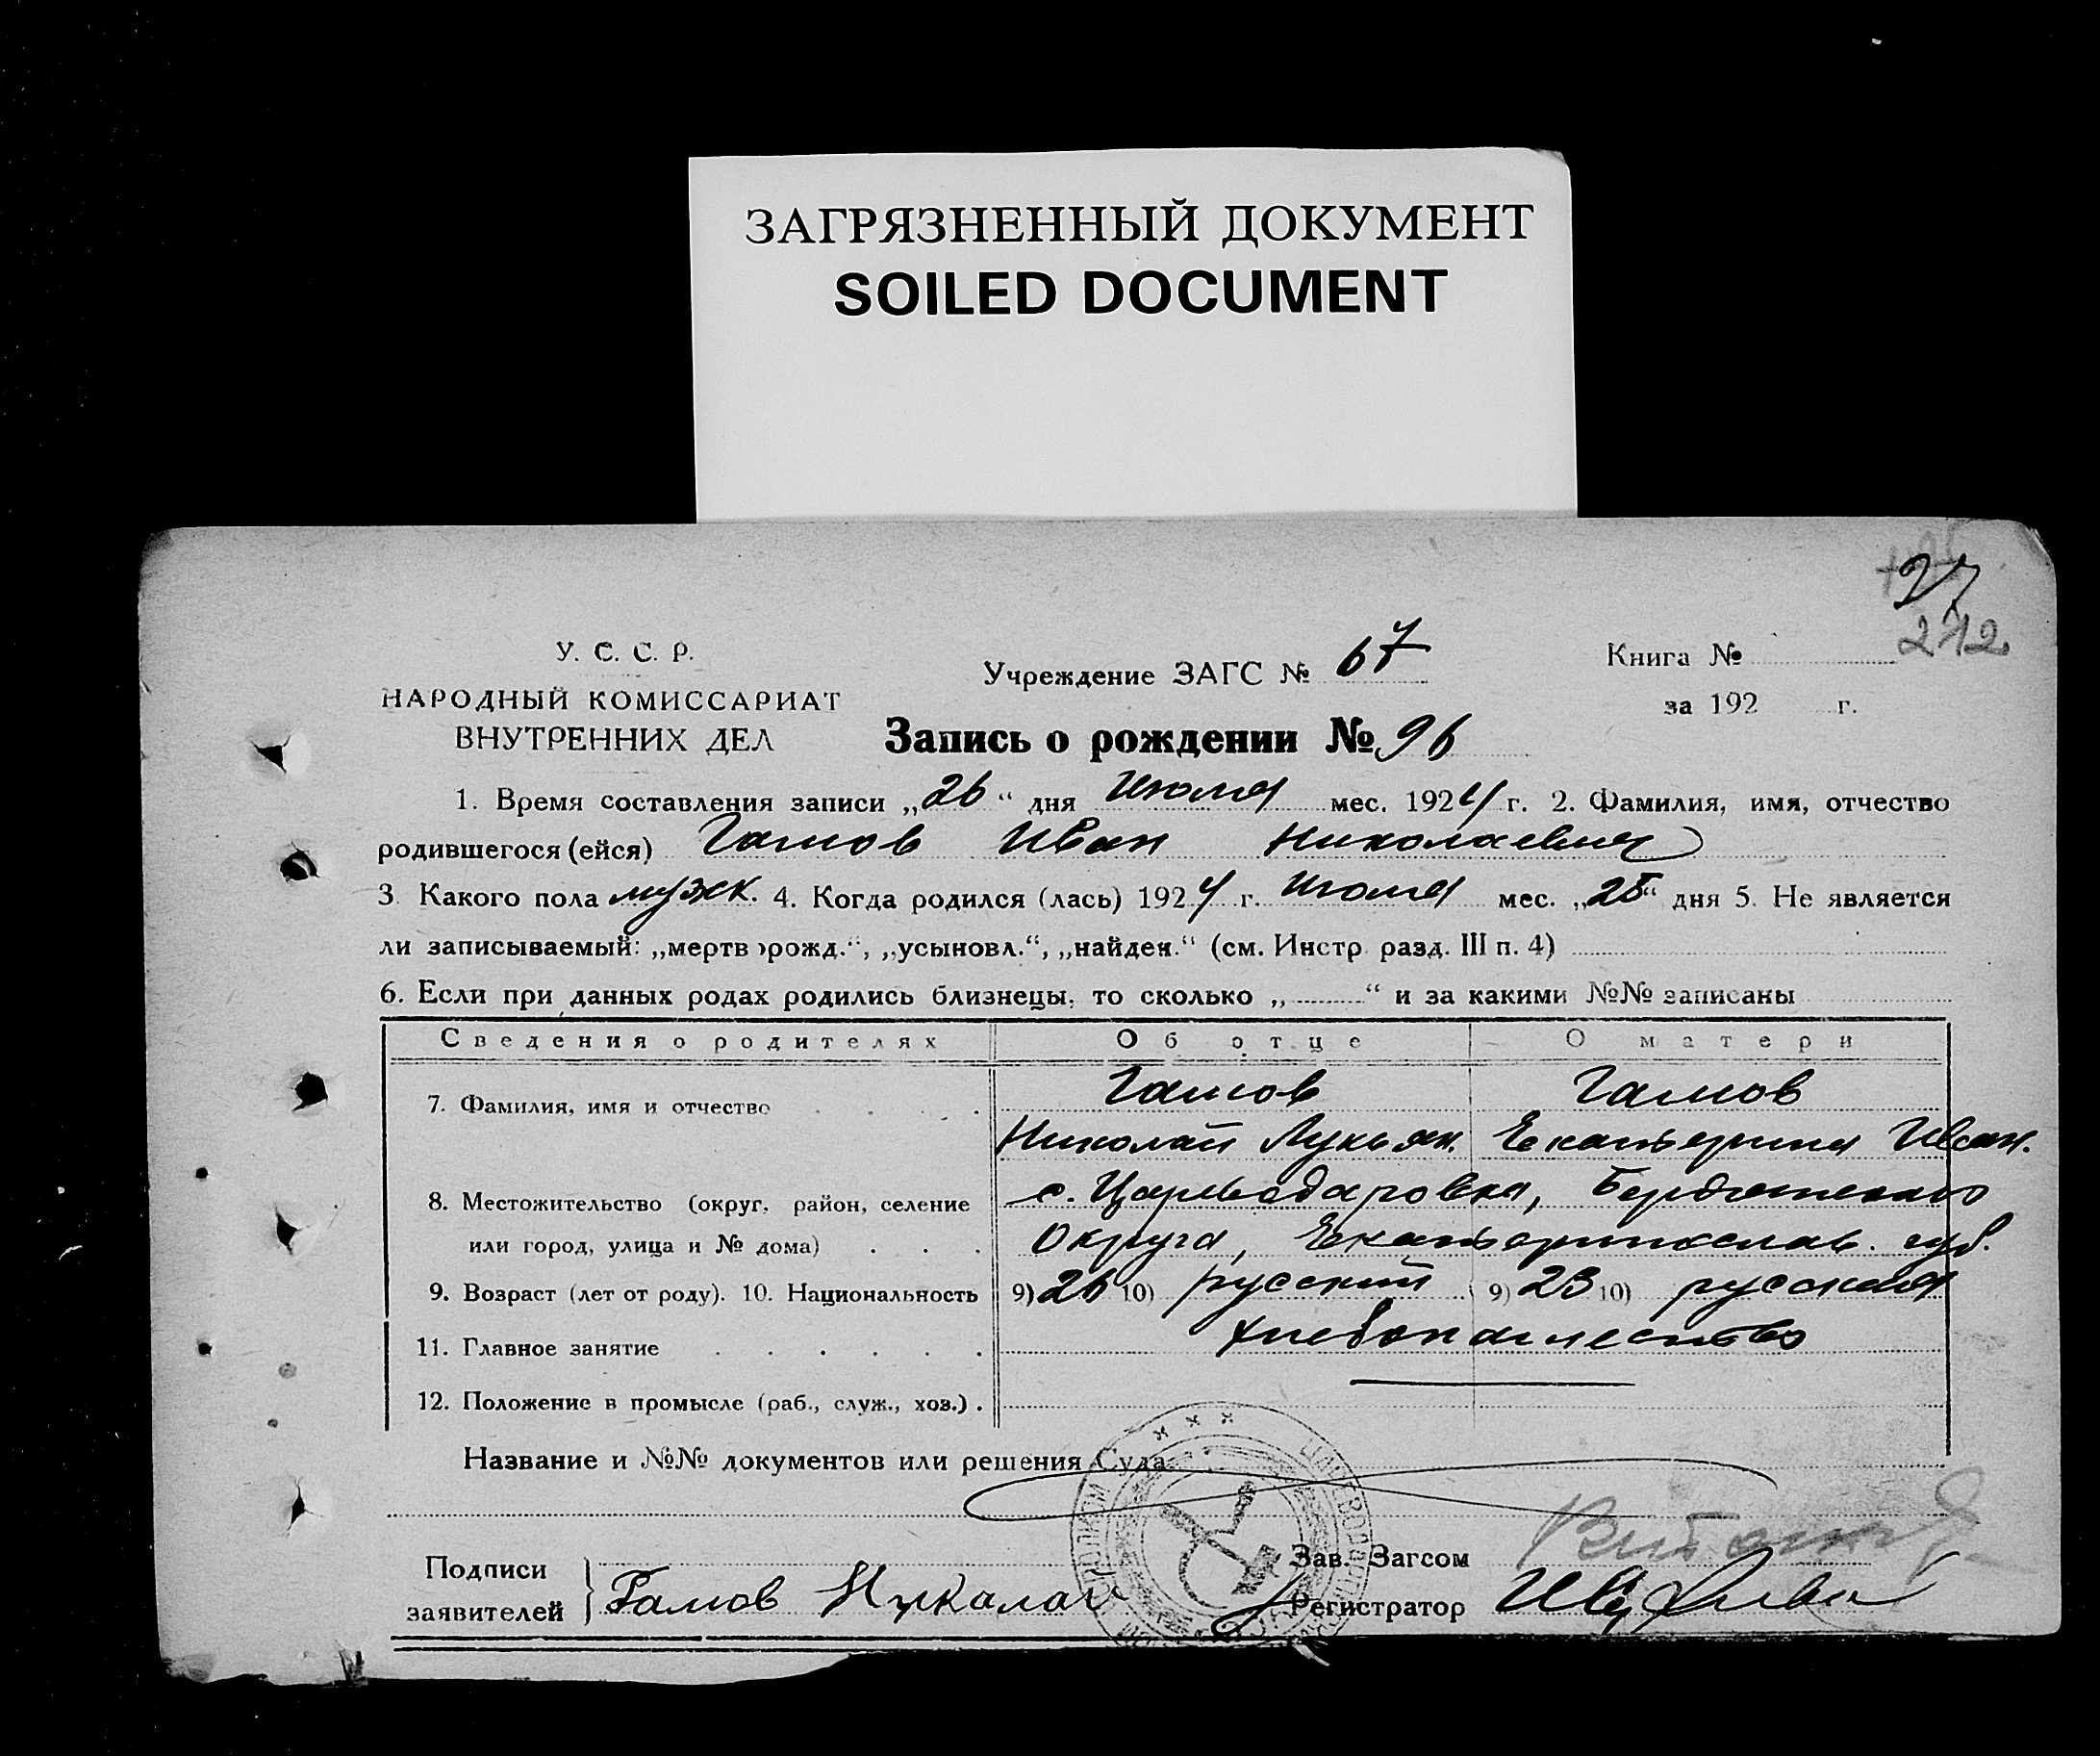 ЗАГРЯЗНЕННЫЙ ДОКУМЕНТ
SOILED DOCUMENT
27
242
У. С. С. Р.
НАРОДНЫЙ КОМИССАРИАТ
ВНУТРЕННИХ ДЕЛ
Учреждение ЗАГС № 67
Книга №
за 192 г.
Запись о рождении № 96
1. Время составления записи „26“ дня Июля мес. 1924 г. 2. Фамилия, имя, отчество
родившегося (ейся) Гамов Иван Николаевич
3 Какого пола мужк. 4. Когда родился (лась) 1924 г. Июля мес. „25“ дня 5. Не является
ли записываемый: „мертворожд.“, „усыновл.“, „найден.“ (см. Инстр. разд. III п. 4)
6. Если при данных родах родились близнецы, то сколько „ “ и за какими №№ записаны
Сведения о родителях Об отце О матери
7. Фамилия, имя и отчество Гамов Гамов
Николай Лукьян. Екатерина Иван.
8. Местожительство (округ, район, селение с. Цареводаровка, Бердянского
или город, улица и № дома) Округа, Екатеринослав. губ.
9. Возраст (лет от роду). 10. Национальность 9) 26 10) русский 9) 23 10) русская
11. Главное занятие хлебопашество
12. Положение в промысле (раб., служ., хоз.)
Название и №№ документов или решения Суда
Подписи
заявителей Гамов Никалай
Зав. Загсом
Регистратор